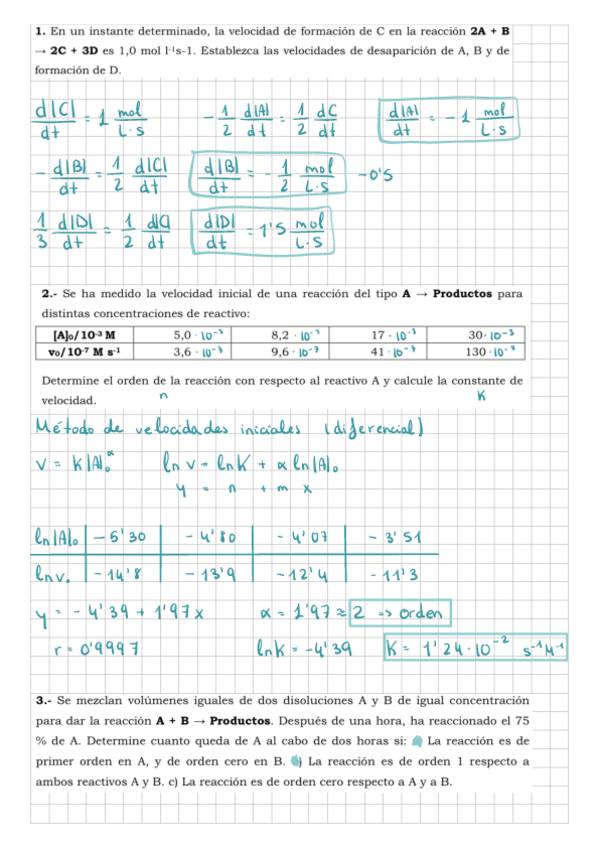 1. En un instante determinado, la velocidad de formación de C en la reacción 2A + B
→ 2C + 3D es 1,0 mol l⁻¹s-1. Establezca las velocidades de desaparición de A, B y de
formación de D.
d|C|/dt = 1 mol/L·s   - 1/2 d|A|/dt = 1/2 dC/dt   d|A|/dt = -1 mol/L·s
- d|B|/dt = 1/2 d|C|/dt   d|B|/dt = - 1/2 mol/L·s   -0'5
1/3 d|D|/dt = 1/2 d|C|/dt   d|D|/dt = 1'5 mol/L·s
2.- Se ha medido la velocidad inicial de una reacción del tipo A → Productos para
distintas concentraciones de reactivo:
[A]₀/10⁻³ M   5,0 · 10⁻³   8,2 · 10⁻³   17 · 10⁻³   30 · 10⁻³
v₀/10⁻⁷ M s⁻¹   3,6 · 10⁻⁷   9,6 · 10⁻⁷   41 · 10⁻⁷   130 · 10⁻⁷
Determine el orden de la reacción con respecto al reactivo A y calcule la constante de
velocidad.   n   K
Método de velocidades iniciales (diferencial)
v = K|A|₀^α   ln v = ln K + α ln|A|₀
y = n + m x
ln|A|₀   -5'30   -4'80   -4'07   -3'51
ln v₀   -14'8   -13'9   -12'4   -11'3
y = -4'39 + 1'97x   α = 1'97 ≈ 2 => orden
r = 0'9997   ln K = -4'39   K = 1'24·10⁻² s⁻¹M⁻¹
3.- Se mezclan volúmenes iguales de dos disoluciones A y B de igual concentración
para dar la reacción A + B → Productos. Después de una hora, ha reaccionado el 75
% de A. Determine cuanto queda de A al cabo de dos horas si: La reacción es de
primer orden en A, y de orden cero en B. ) La reacción es de orden 1 respecto a
ambos reactivos A y B. c) La reacción es de orden cero respecto a A y a B.